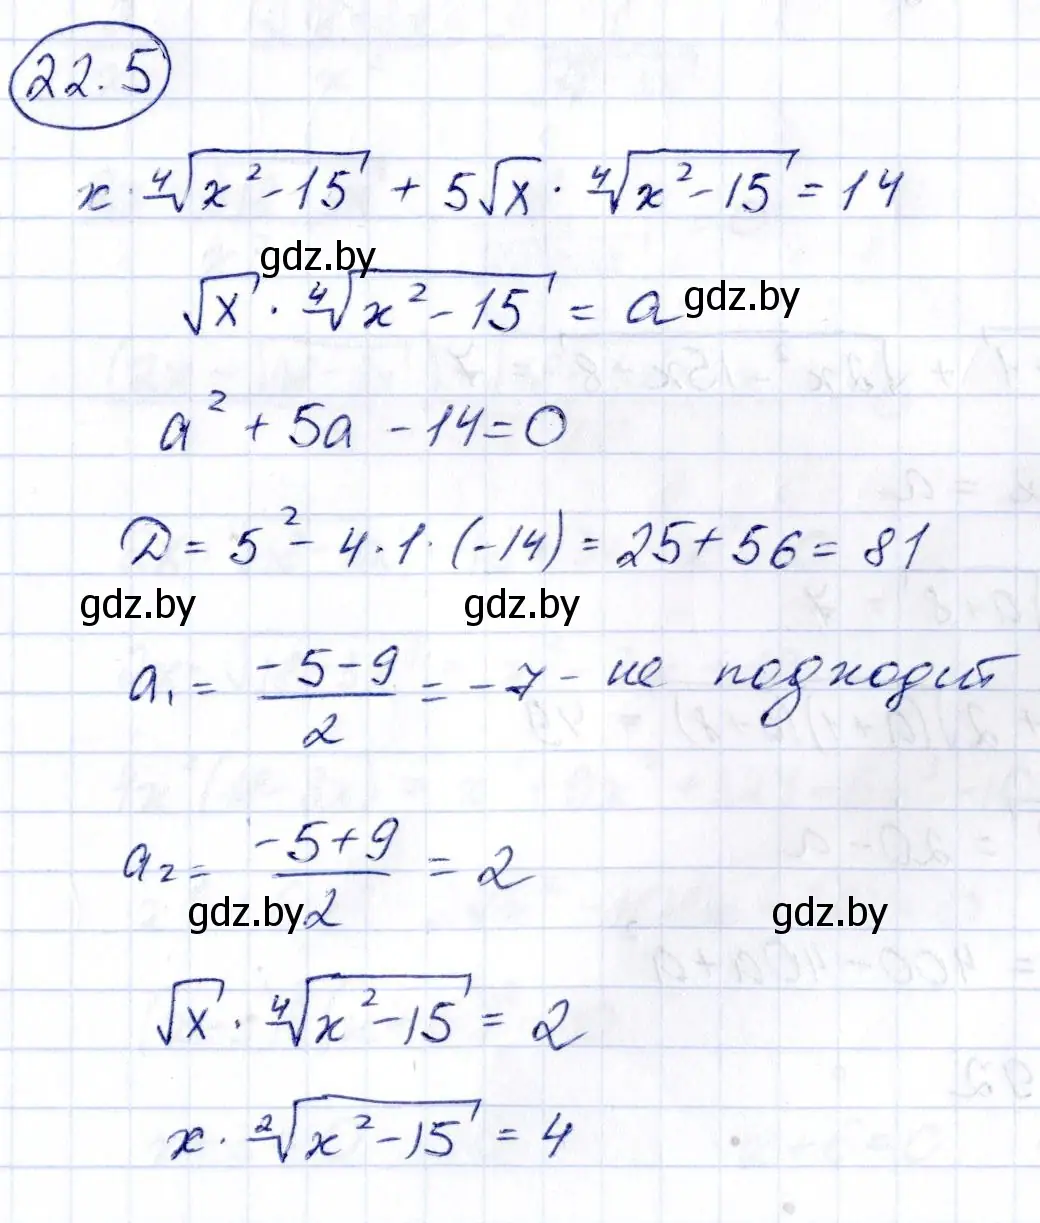 22.5
x · ∜(x² - 15) + 5√x · ∜(x² - 15) = 14
gdz.by
√x · ∜(x² - 15) = a gdz.by
a² + 5a - 14 = 0
D = 5² - 4 · 1 · (-14) = 25 + 56 = 81
gdz.by gdz.by
a₁ = (-5 - 9)/2 = -7 - не подходит
a₂ = (-5 + 9)/2 = 2
gdz.by gdz.by
√x · ∜(x² - 15) = 2
x · ²√(x² - 15) = 4